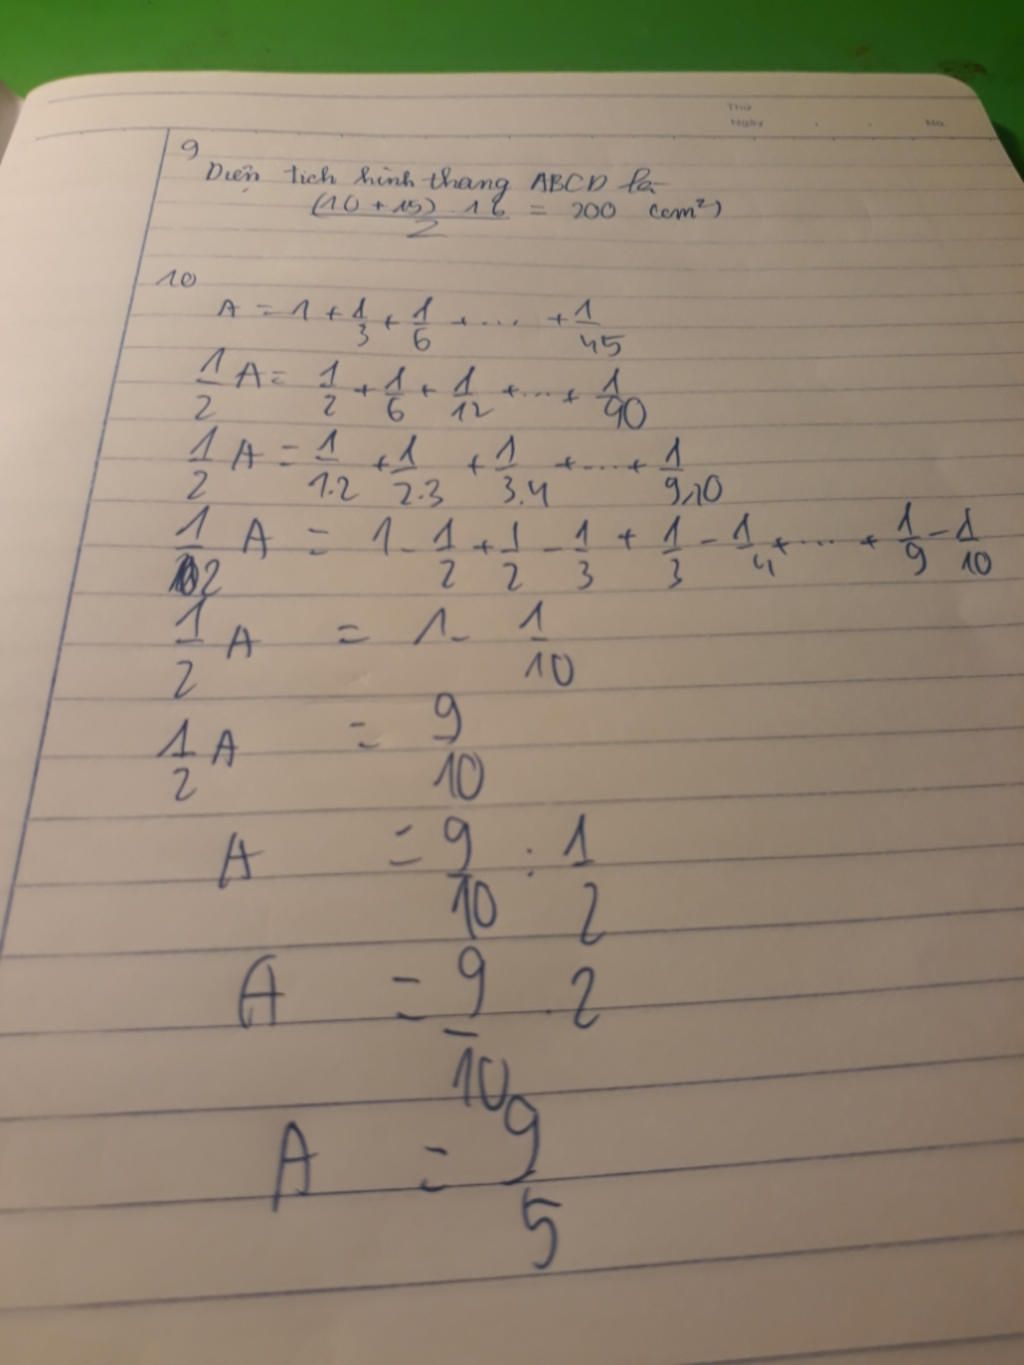 Thứ
Ngày . . No.
9
Diện tích hình thang ABCD là
(10 + 15) . 16 / 2 = 200 (cm²)
10
A = 1 + 1/3 + 1/6 + ... + 1/45
1/2 A = 1/2 + 1/6 + 1/12 + ... + 1/90
1/2 A = 1/1.2 + 1/2.3 + 1/3.4 + ... + 1/9.10
1/2 A = 1 - 1/2 + 1/2 - 1/3 + 1/3 - 1/4 + ... + 1/9 - 1/10
1/2 A = 1 - 1/10
1/2 A = 9/10
A = 9/10 : 1/2
A = 9/10 . 2
A = 9/5